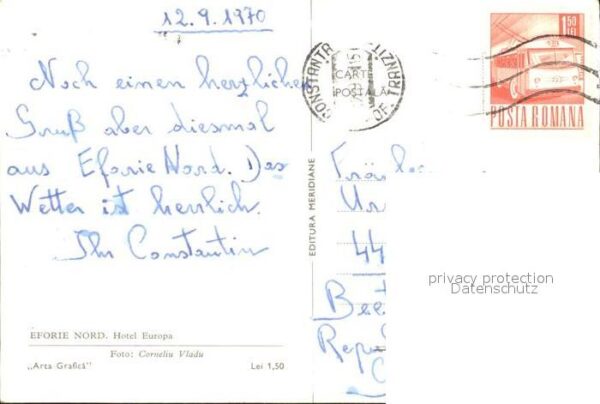 12.9.1970
Noch einen herzlichen
Gruß aber diesmal
aus Eforie Nord. Das
Wetter ist herrlich.
Ihr Constantin
EFORIE NORD. Hotel Europa
Foto: Corneliu Vladu
„Arta Grafică” Lei 1,50
EDITURA MERIDIANE
CONSTANȚA
OF. TRANZIT
CARTE
POȘTALĂ
1,50
LEI
POSTA ROMANA
44
privacy protection
Datenschutz